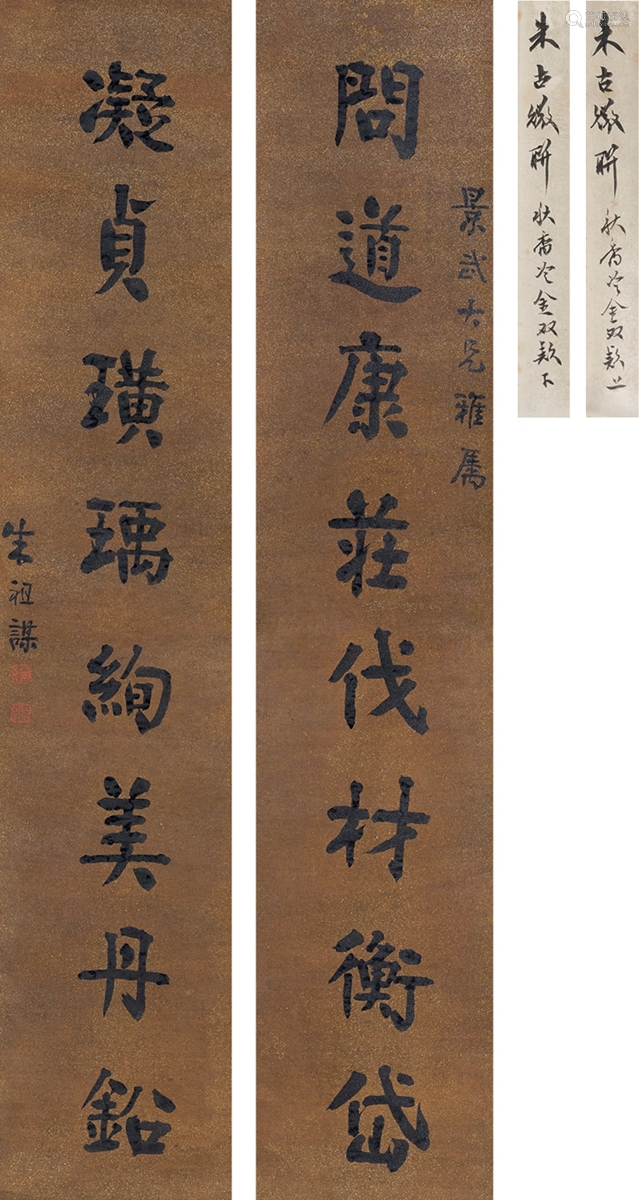 問道康莊伐材衡岱
景武大兄雅属
凝貞璜瑀絢美丹鉛
朱祖謀
朱古微聯 秋斋冷金双款上
朱古微聯 秋斋冷金双款下